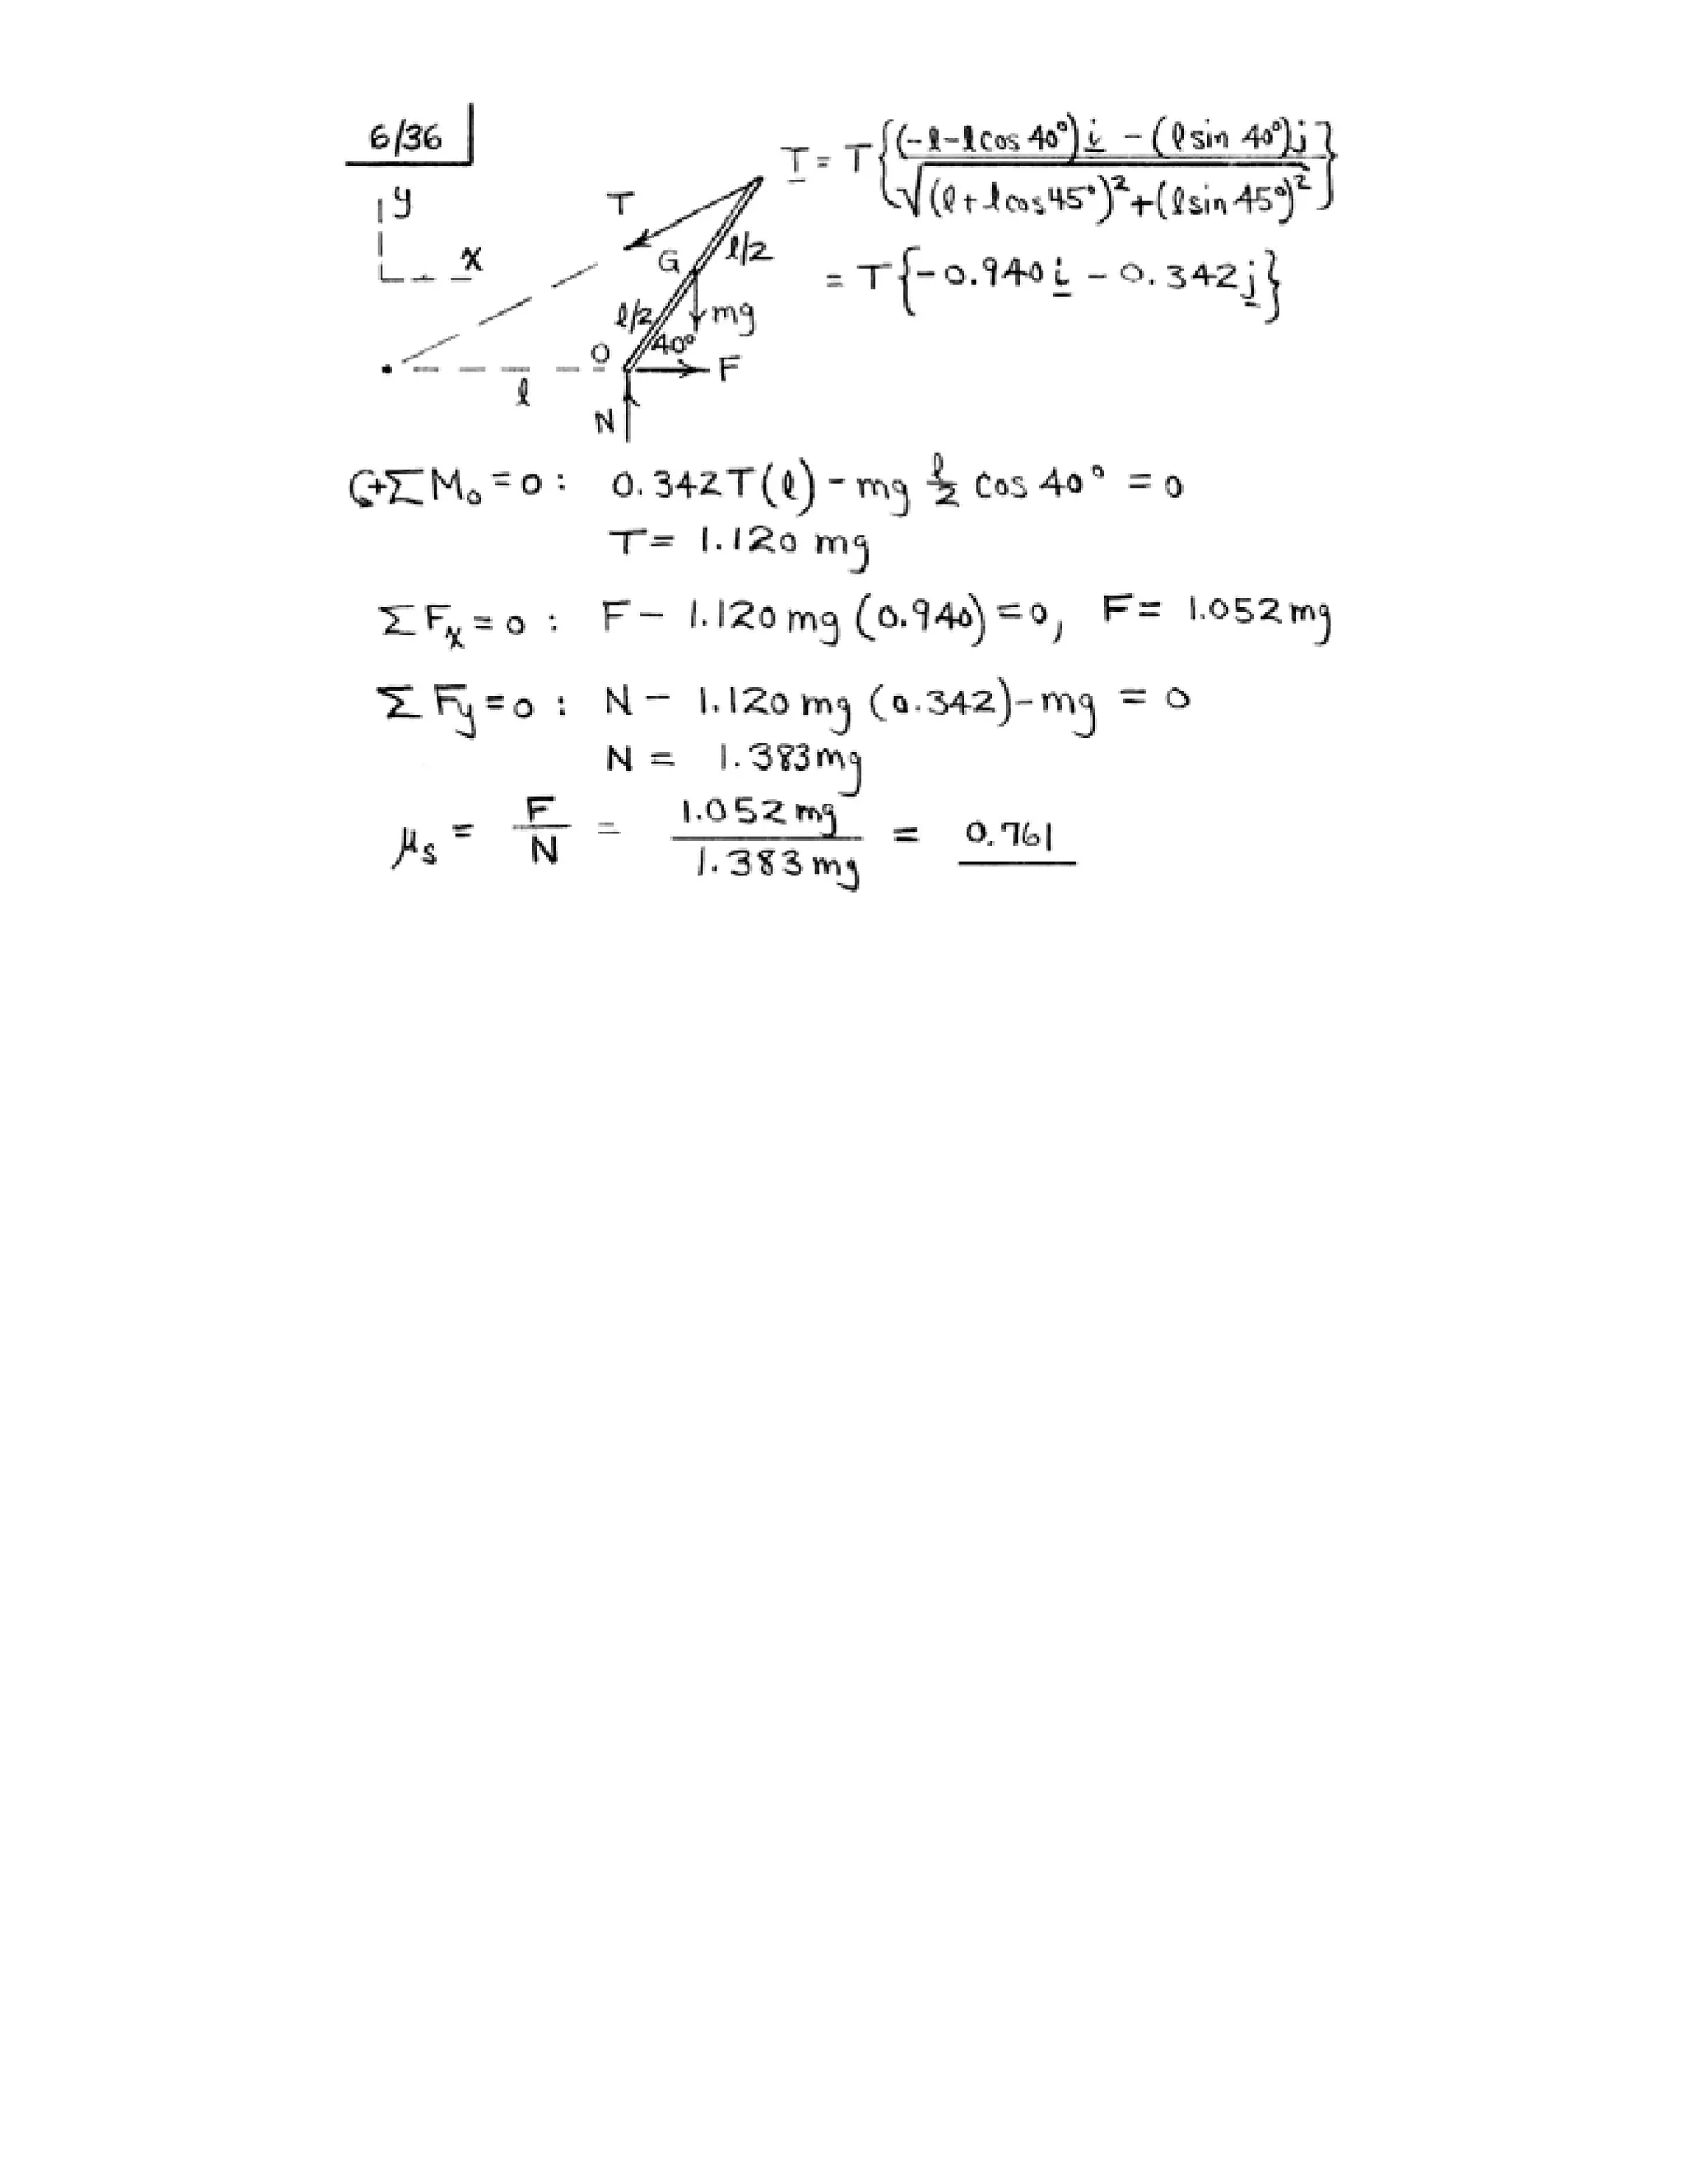 6/36
y
x
T
G
l/2
l/2
mg
O
40°
F
l
N
T = T{(-l-lcos 40°)i - (lsin 40°)j / √((l+lcos45°)²+(lsin45°)²)}
= T{-0.940i - 0.342j}
↺+ΣM₀ = 0: 0.342T(l) - mg l/2 cos 40° = 0
T = 1.120 mg
ΣFx = 0: F - 1.120 mg (0.940) = 0, F = 1.052 mg
ΣFy = 0: N - 1.120 mg (0.342) - mg = 0
N = 1.383 mg
μs = F/N = 1.052 mg / 1.383 mg = 0.761